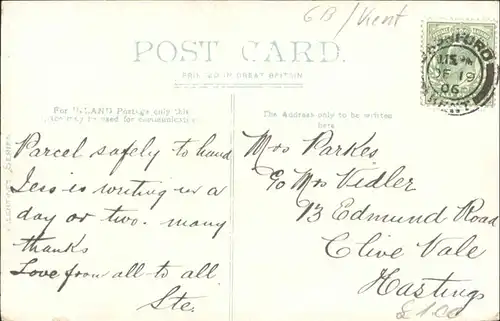 GB/Kent
POST CARD.
PRINTED IN GREAT BRITAIN
For INLAND Postage only this
may be used for communication
The Address only to be written
here
Parcel safely to hand
Jess is writing in a
day or two. many
thanks
Love from all to all
Ste.
Mrs Parkes
c/o Mrs Vidler
73 Edmund Road
Clive Vale
Hastings
£1.00
06
KENT